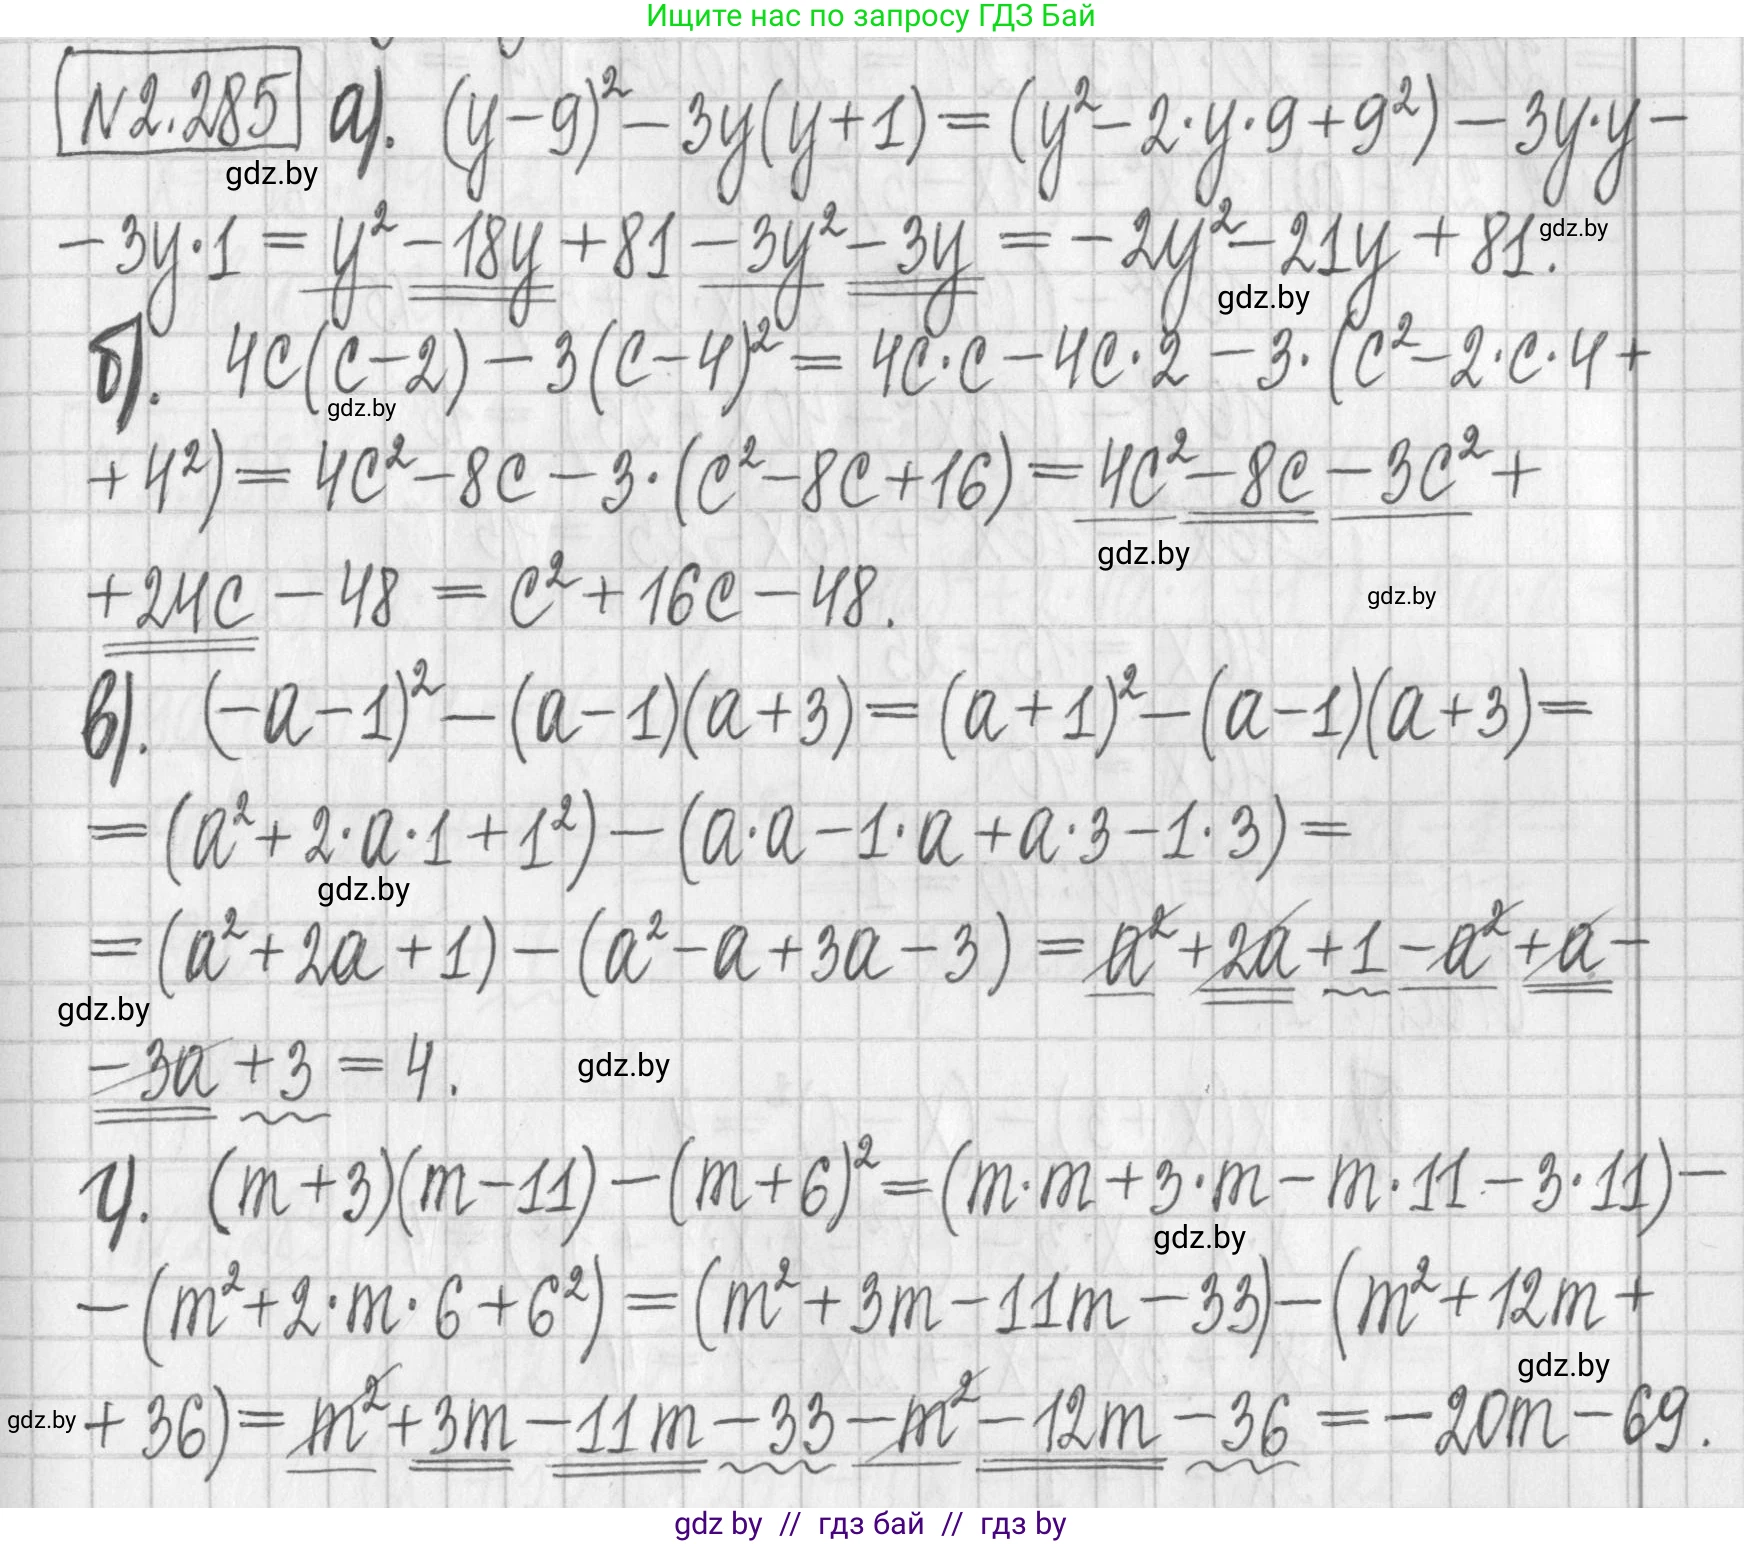 Ищите нас по запросу ГДЗ Бай
N2.285 а). (y-9)² - 3y(y+1) = (y² - 2·y·9 + 9²) - 3y·y -
gdz.by
- 3y·1 = y² - 18y + 81 - 3y² - 3y = - 2y² - 21y + 81.
gdz.by
gdz.by
б). 4c(c-2) - 3(c-4)² = 4c·c - 4c·2 - 3·(c² - 2·c·4 +
gdz.by
+ 4²) = 4c² - 8c - 3·(c² - 8c + 16) = 4c² - 8c - 3c² +
gdz.by
+ 24c - 48 = c² + 16c - 48.
gdz.by
в). (-a-1)² - (a-1)(a+3) = (a+1)² - (a-1)(a+3) =
= (a² + 2·a·1 + 1²) - (a·a - 1·a + a·3 - 1·3) =
gdz.by
= (a² + 2a + 1) - (a² - a + 3a - 3) = a² + 2a + 1 - a² + a -
gdz.by
- 3a + 3 = 4.
gdz.by
г). (m+3)(m-11) - (m+6)² = (m·m + 3·m - m·11 - 3·11) -
gdz.by
- (m² + 2·m·6 + 6²) = (m² + 3m - 11m - 33) - (m² + 12m +
gdz.by
gdz.by
+ 36) = m² + 3m - 11m - 33 - m² - 12m - 36 = - 20m - 69.
gdz by // гдз бай // гдз by